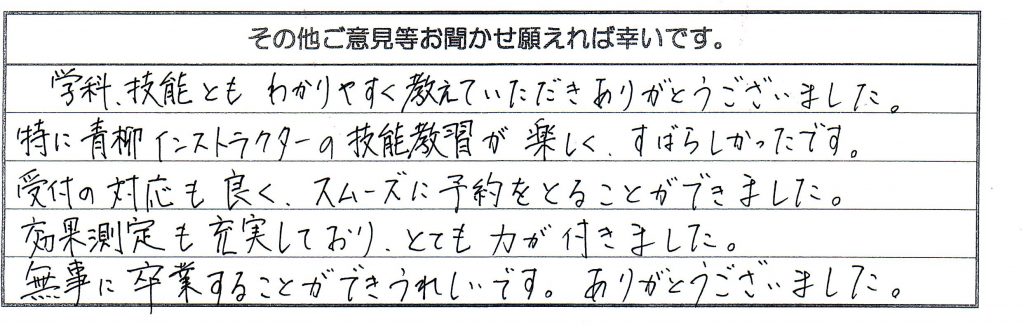 その他ご意見等お聞かせ願えれば幸いです。
学科、技能とも わかりやすく教えていただきありがとうございました。
特に青柳インストラクターの技能教習が 楽しく、すばらしかったです。
受付の対応も良く、スムーズに予約をとることができました。
効果測定も充実しており、とても力が付きました。
無事に卒業することができうれしいです。ありがとうございました。